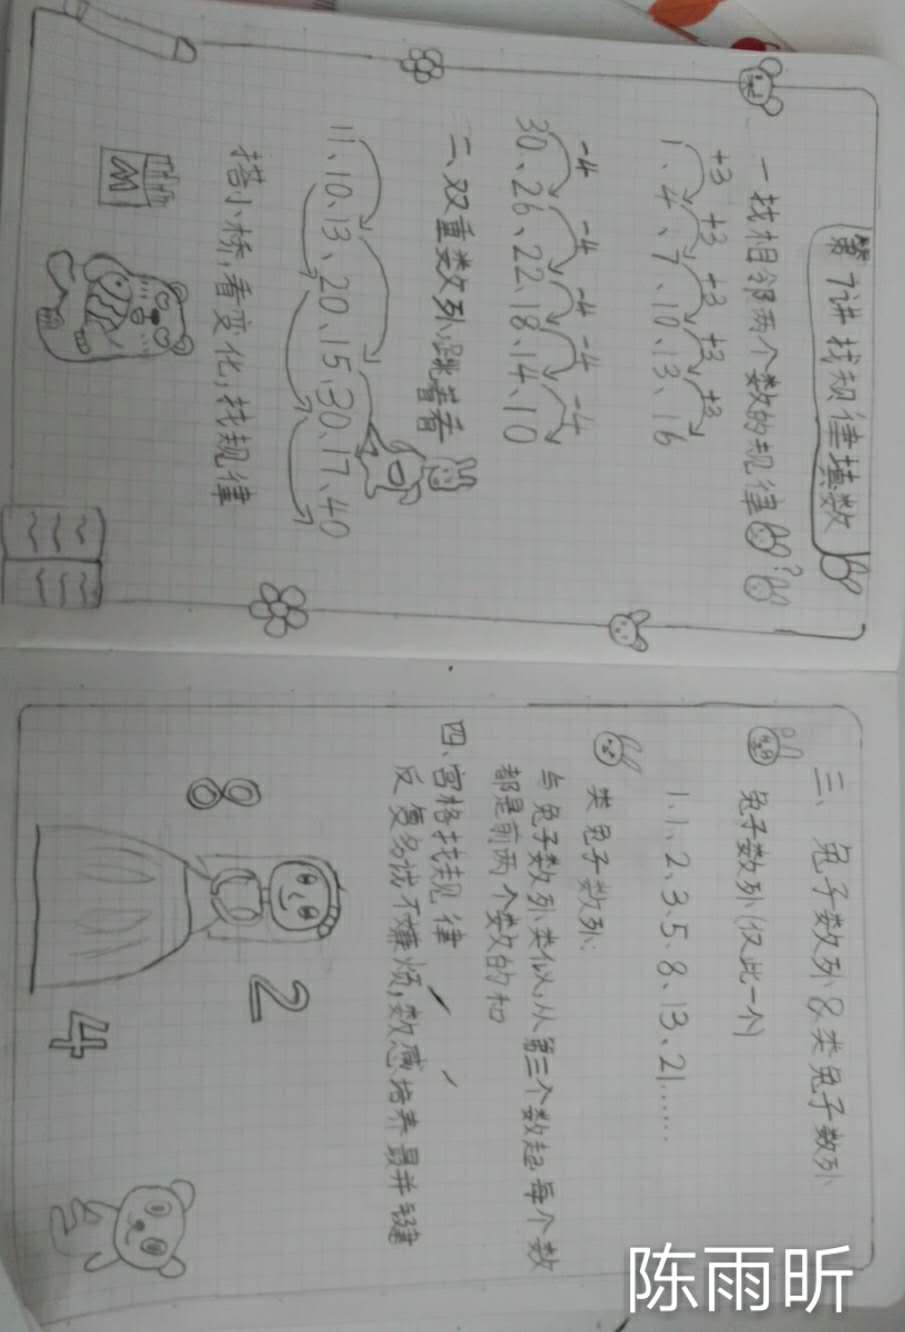 第7讲 找规律填数
一 找相邻两个数的规律
?
+3 +3 +3 +3 +3
1、4、7、10、13、16
-4 -4 -4 -4 -4
30、26、22、18、14、10
二、双重数列,跳着看
11、10、13、20、15、30、17、40
搭小桥,看变化,找规律
三、兔子数列&类兔子数列
兔子数列(仅此一个)
1、1、2、3、5、8、13、21……
类兔子数列:
与兔子数列类似,从第三个数起,每个数
都是前两个数的和
四、宫格找规律
反复多试不嫌烦,数感培养最关键
8
2
4
陈雨昕